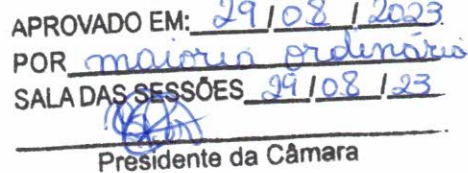 APROVADO EM: 29 / 08 / 2023
POR maioria ordinária
SALA DAS SESSÕES 29 / 08 / 23
Presidente da Câmara